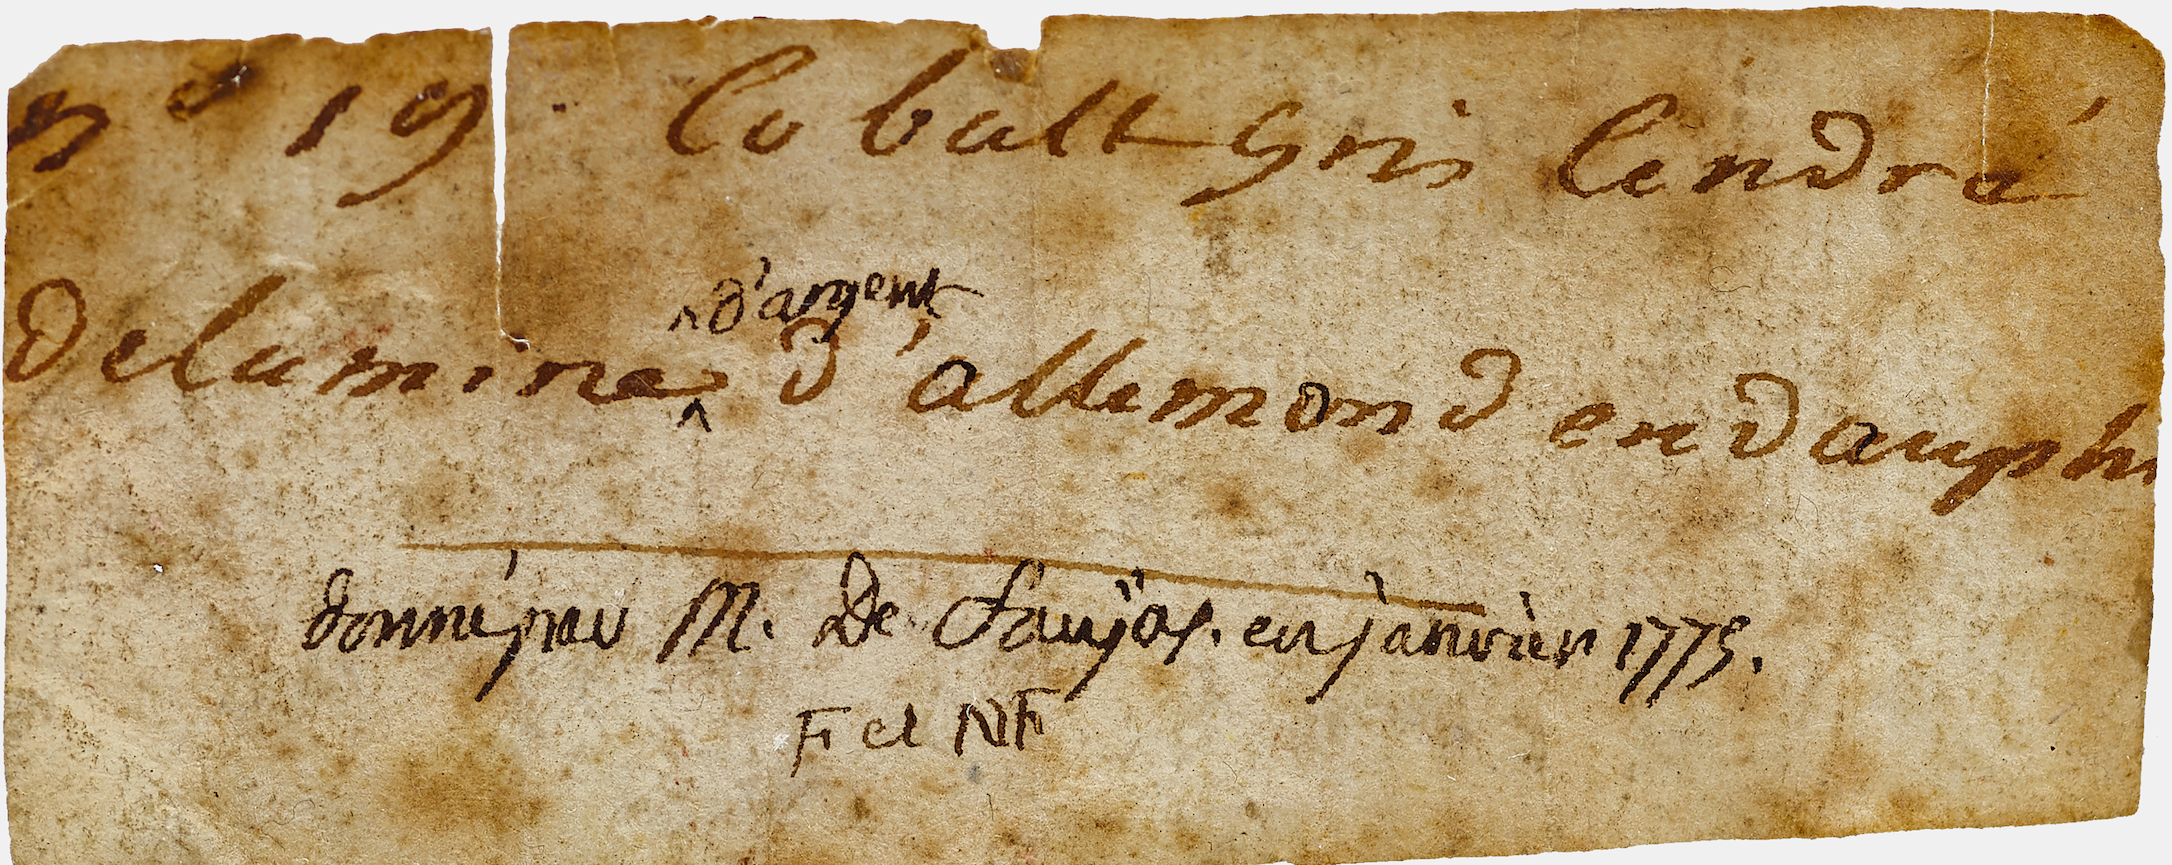 n° 19. Cobalt Gris Cendré
de la mine ^d'argent d'allemond en dauphi
donné par M. De Faujas. en janvier 1775.
F et NF